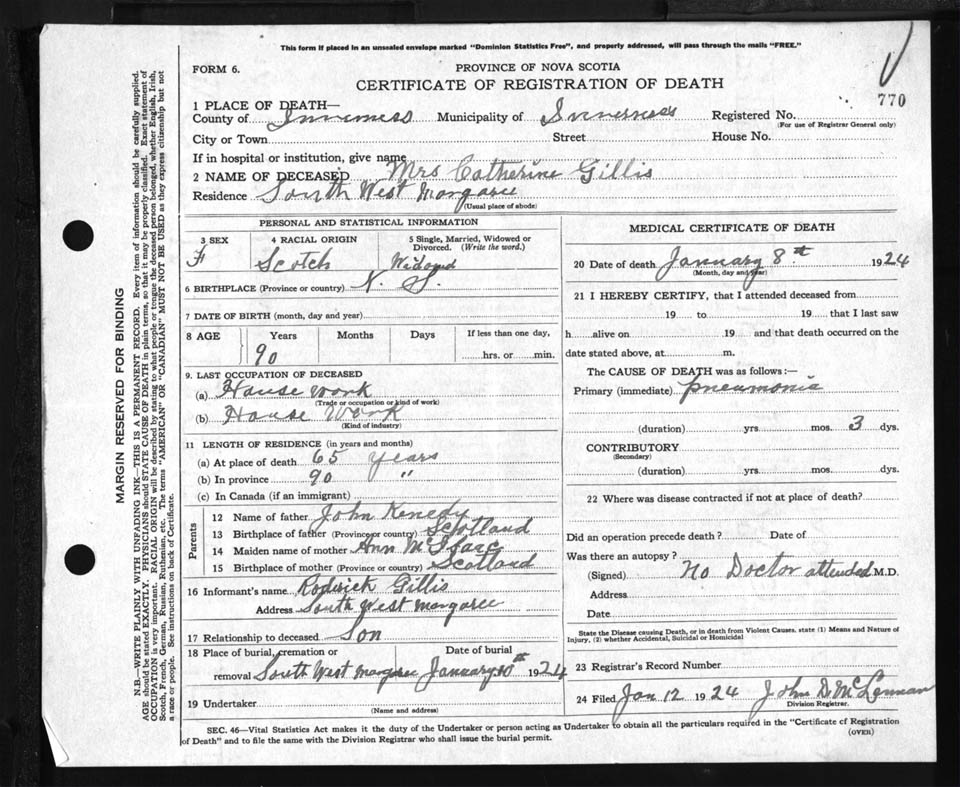 This form if placed in an unsealed envelope marked "Dominion Statistics Free", and properly addressed, will pass through the mails "FREE."
FORM 6.
PROVINCE OF NOVA SCOTIA
CERTIFICATE OF REGISTRATION OF DEATH
770
1 PLACE OF DEATH—
County of Inverness Municipality of Inverness Registered No.
(For use of Registrar General only)
City or Town Street House No.
If in hospital or institution, give name
2 NAME OF DECEASED Mrs Catherine Gillis
Residence South West Margaree
(Usual place of abode)
PERSONAL AND STATISTICAL INFORMATION
3 SEX 4 RACIAL ORIGIN 5 Single, Married, Widowed or Divorced. (Write the word.)
F Scotch Widowd
6 BIRTHPLACE (Province or country) N. S.
7 DATE OF BIRTH (month, day and year)
8 AGE Years Months Days If less than one day,
90 hrs. or min.
9. LAST OCCUPATION OF DECEASED
(a) House Work
(Trade or occupation or kind of work)
(b) House Work
(Kind of industry)
11 LENGTH OF RESIDENCE (in years and months)
(a) At place of death 65 years
(b) In province 90 "
(c) In Canada (if an immigrant)
Parents
12 Name of father John Kenedy
13 Birthplace of father (Province or country) Scotland
14 Maiden name of mother Ann McIsaac
15 Birthplace of mother (Province or country) Scotland
16 Informant's name Roderick Gillis
Address South West Margaree
17 Relationship to deceased Son
18 Place of burial, cremation or removal Date of burial
South West Margaree January 10th 1924
19 Undertaker
(Name and address)
MEDICAL CERTIFICATE OF DEATH
20 Date of death January 8th 1924
(Month, day and year)
21 I HEREBY CERTIFY, that I attended deceased from
19 to 19 , that I last saw
h alive on 19 and that death occurred on the
date stated above, at m.
The CAUSE OF DEATH was as follows:—
Primary (immediate) Pneumonia
(duration) yrs. mos. 3 dys.
CONTRIBUTORY
(Secondary)
(duration) yrs. mos. dys.
22 Where was disease contracted if not at place of death?
Did an operation precede death? Date of
Was there an autopsy?
(Signed) No Doctor attended M.D.
Address
Date
State the Disease causing Death, or in death from Violent Causes, state (1) Means and Nature of
Injury, (2) whether Accidental, Suicidal or Homicidal
23 Registrar's Record Number
24 Filed Jan 12 1924 John D. McLennan
Division Registrar.
SEC. 46—Vital Statistics Act makes it the duty of the Undertaker or person acting as Undertaker to obtain all the particulars required in the "Certificate of Registration
of Death" and to file the same with the Division Registrar who shall issue the burial permit.
(OVER)
MARGIN RESERVED FOR BINDING
N.B.—WRITE PLAINLY WITH UNFADING INK—THIS IS A PERMANENT RECORD. Every item of information should be carefully supplied.
AGE should be stated EXACTLY. PHYSICIANS should STATE CAUSE OF DEATH in plain terms, so that it may be properly classified. Exact statement of
OCCUPATION is very important. RACIAL ORIGIN will be described by stating to what people or tongue the deceased person belonged, whether English, Irish,
Scotch, French, German, Russian, Ruthenian, etc. The terms "AMERICAN" OR "CANADIAN" MUST NOT BE USED as they express citizenship but not
a race or people. See instructions on back of Certificate.